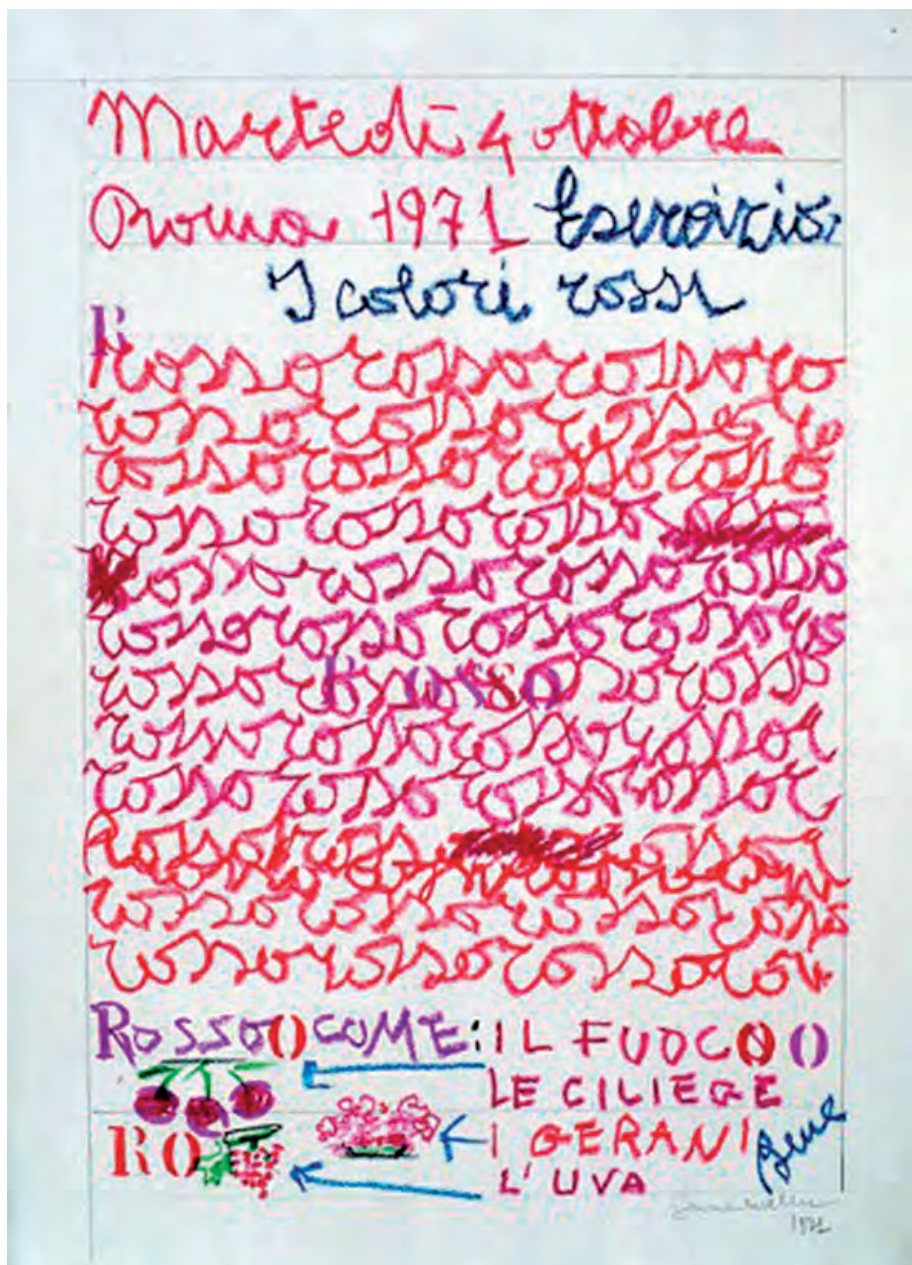 Martedì 4 ottobre
Roma 1971 Esercizio:
I colori rossi
Rossorossorossoro
rossorossorossoro
ossorossorossorosso
rossorossorosso
rossorossorossorosso
rossorossorossorossoros
rossor ROSSO sorosso
rossorossorossorossor
rossorossorossorossor
Rossorosso
rossorossorossoross
rossorossorossoross
ROSSO O COME: IL FUOCO O
LE CILIEGE
RO I GERANI Bene
L'UVA
1971